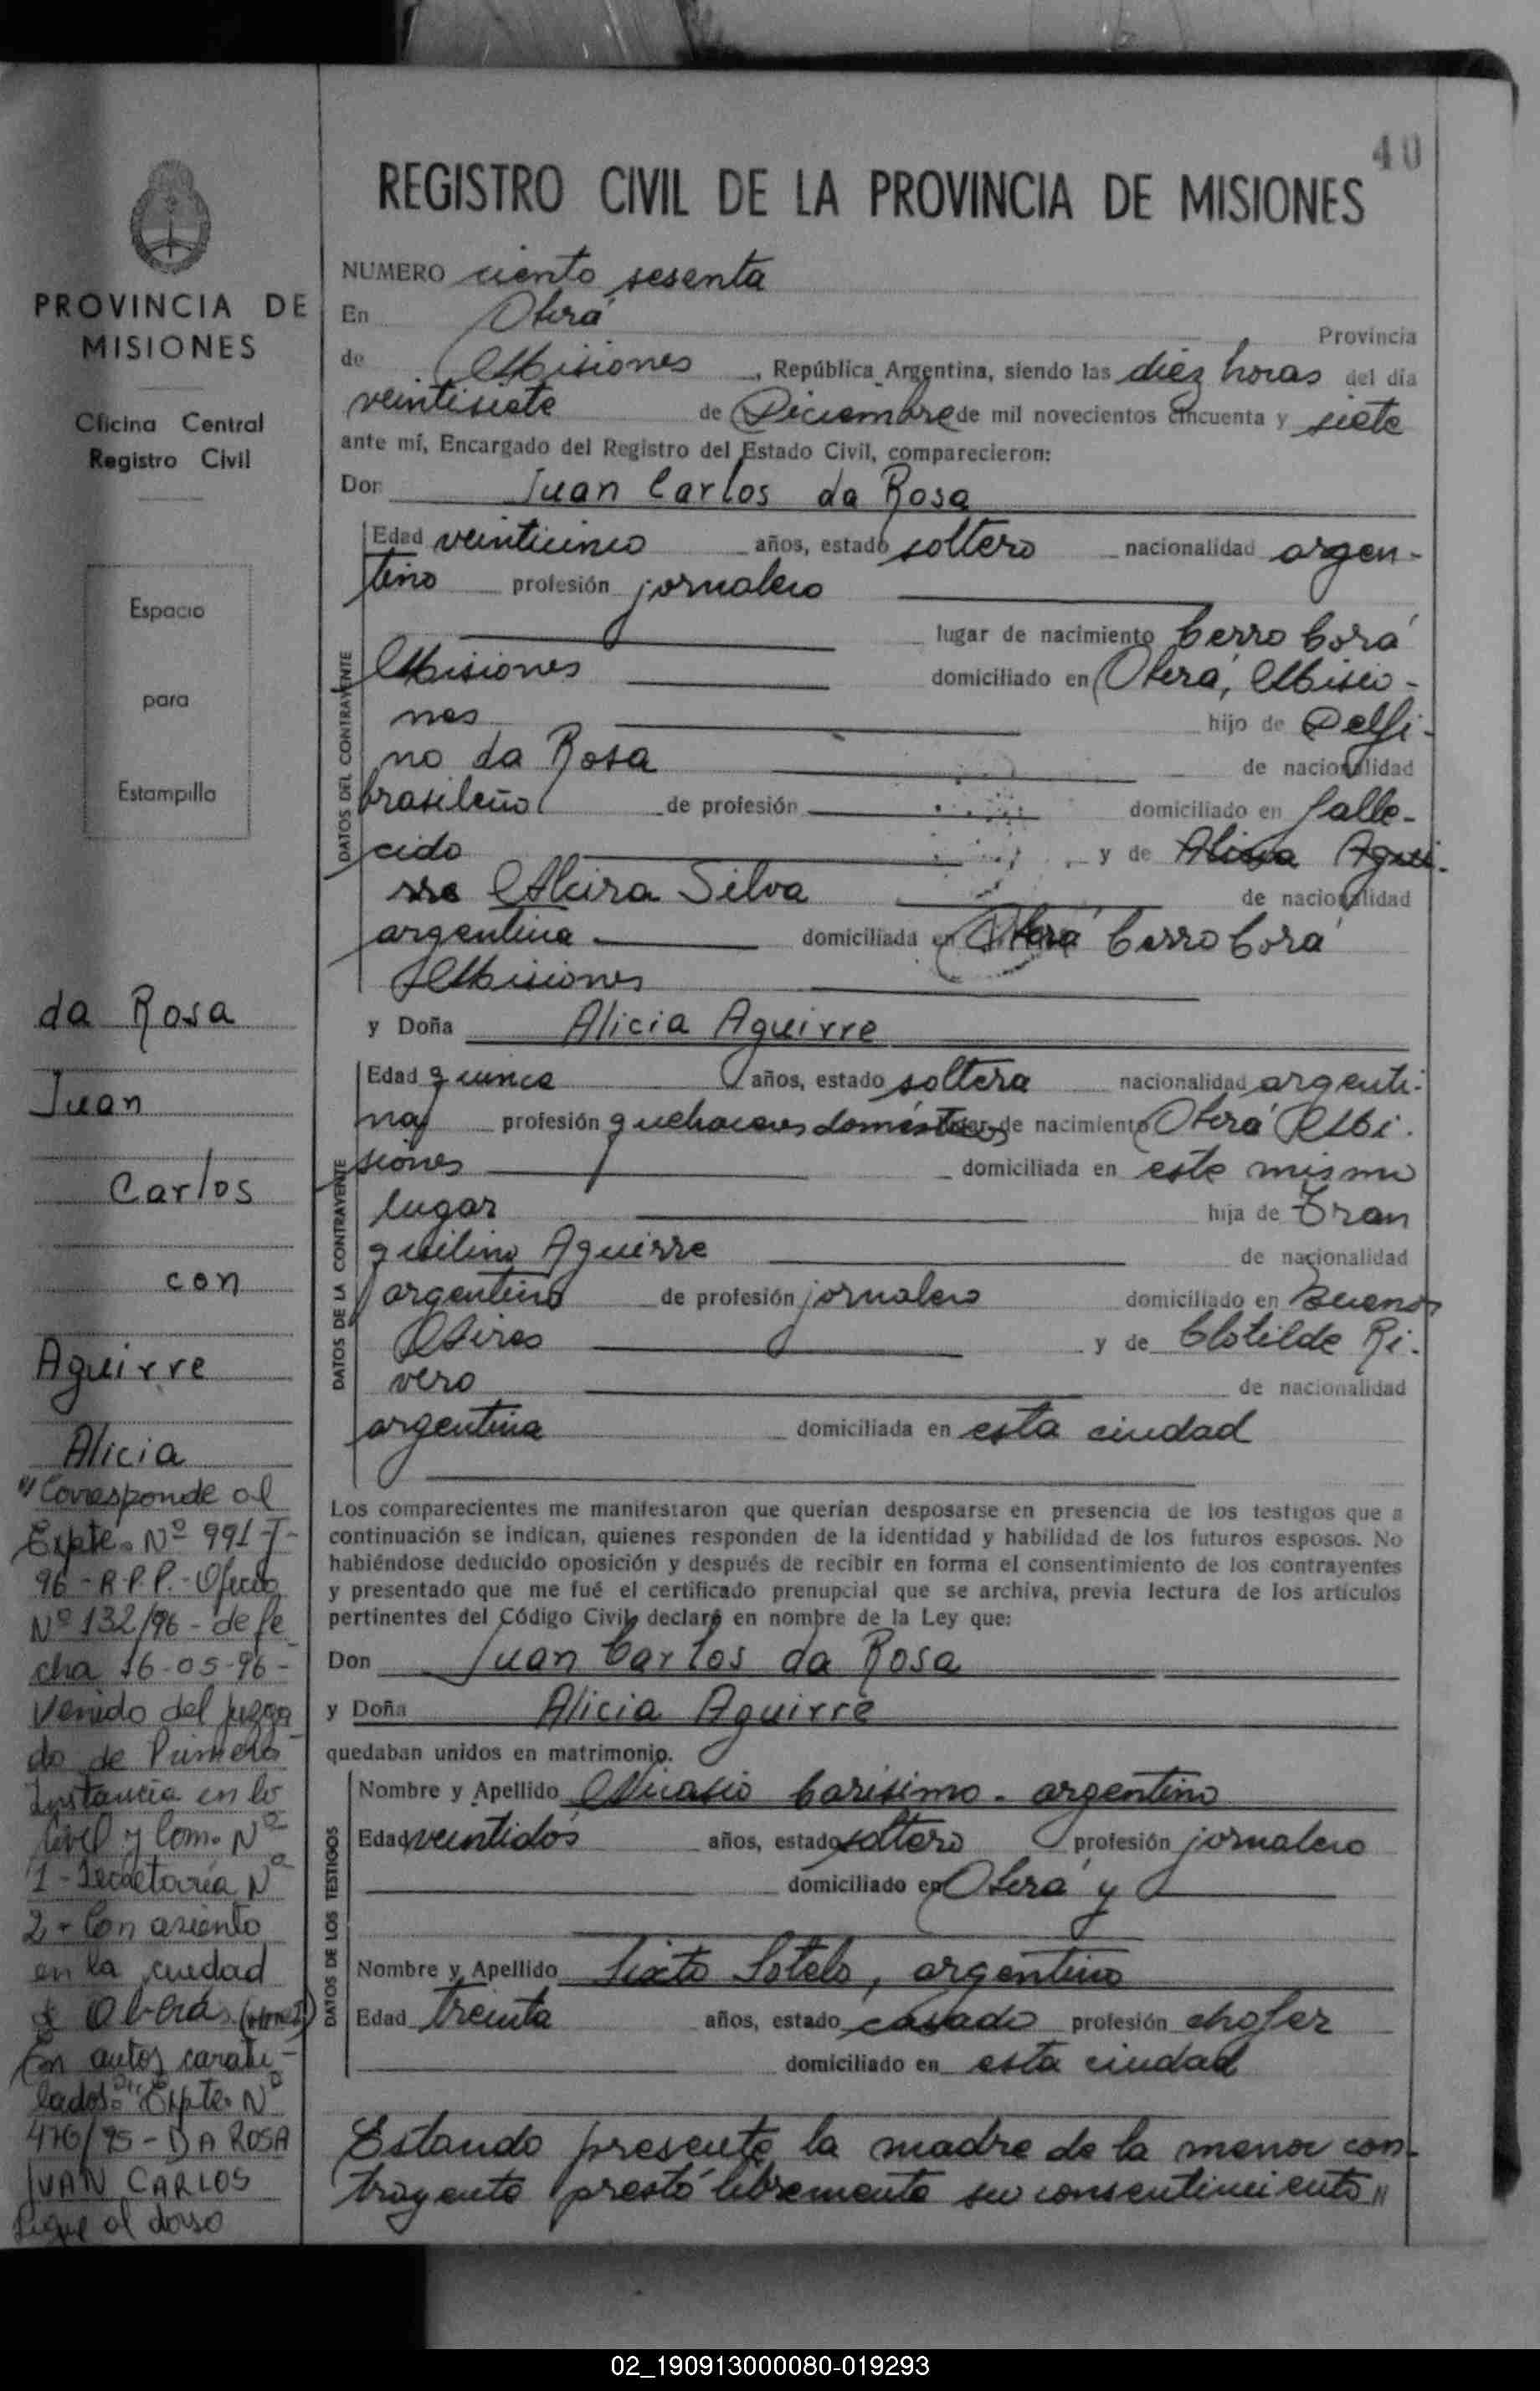 40
REGISTRO CIVIL DE LA PROVINCIA DE MISIONES
PROVINCIA DE
MISIONES
Oficina Central
Registro Civil
Espacio
para
Estampilla
da Rosa
Juan
Carlos
con
Aguirre
Alicia
"Corresponde al
Expte. Nº 991-T-
96-R.P.P.-Oficio
Nº 132/96-de fe
cha 16-05-96-
Venido del Juzga
do de Primera
Instancia en lo
Civil y Com. Nº
1-Secretaría Nº
2-Con asiento
en la ciudad
de Oberá
En autos caratu-
lados: "Expte. Nº
476/95-DA ROSA
JUAN CARLOS
Sigue al dorso
NUMERO ciento sesenta
En Oberá Provincia
de Misiones, República Argentina, siendo las diez horas del día
veintisiete de Diciembre de mil novecientos cincuenta y siete
ante mí, Encargado del Registro del Estado Civil, comparecieron:
Don Juan Carlos da Rosa
DATOS DEL CONTRAYENTE
Edad veinticinco años, estado soltero nacionalidad argen-
tino profesión jornalero
lugar de nacimiento Cerro Corá
Misiones domiciliado en Oberá, Misio-
nes hijo de Delfi-
no da Rosa de nacionalidad
brasileño de profesión domiciliado en falle-
cido y de Alicia Agui-
rre Alcira Silva de nacionalidad
argentina domiciliada en Oberá Cerro Corá
Misiones
y Doña Alicia Aguirre
DATOS DE LA CONTRAYENTE
Edad quince años, estado soltera nacionalidad argenti-
na profesión quehaceres domésticos lugar de nacimiento Oberá Mi-
siones domiciliada en este mismo
lugar hija de Tran
quilino Aguirre de nacionalidad
argentino de profesión jornalero domiciliado en Buenos
Aires y de Clotilde Ri-
vero de nacionalidad
argentina domiciliada en esta ciudad
Los comparecientes me manifestaron que querían desposarse en presencia de los testigos que a
continuación se indican, quienes responden de la identidad y habilidad de los futuros esposos. No
habiéndose deducido oposición y después de recibir en forma el consentimiento de los contrayentes
y presentado que me fué el certificado prenupcial que se archiva, previa lectura de los artículos
pertinentes del Código Civil, declaré en nombre de la Ley que:
Don Juan Carlos da Rosa
y Doña Alicia Aguirre
quedaban unidos en matrimonio.
DATOS DE LOS TESTIGOS
Nombre y Apellido Nicasio Carisimo - argentino
Edad veintidós años, estado soltero profesión jornalero
domiciliado en Oberá y
Nombre y Apellido Sixto Sotelo, argentino
Edad treinta años, estado casado profesión chofer
domiciliado en esta ciudad
Estando presente la madre de la menor con-
trayente prestó libremente su consentimiento //
02_190913000080-019293